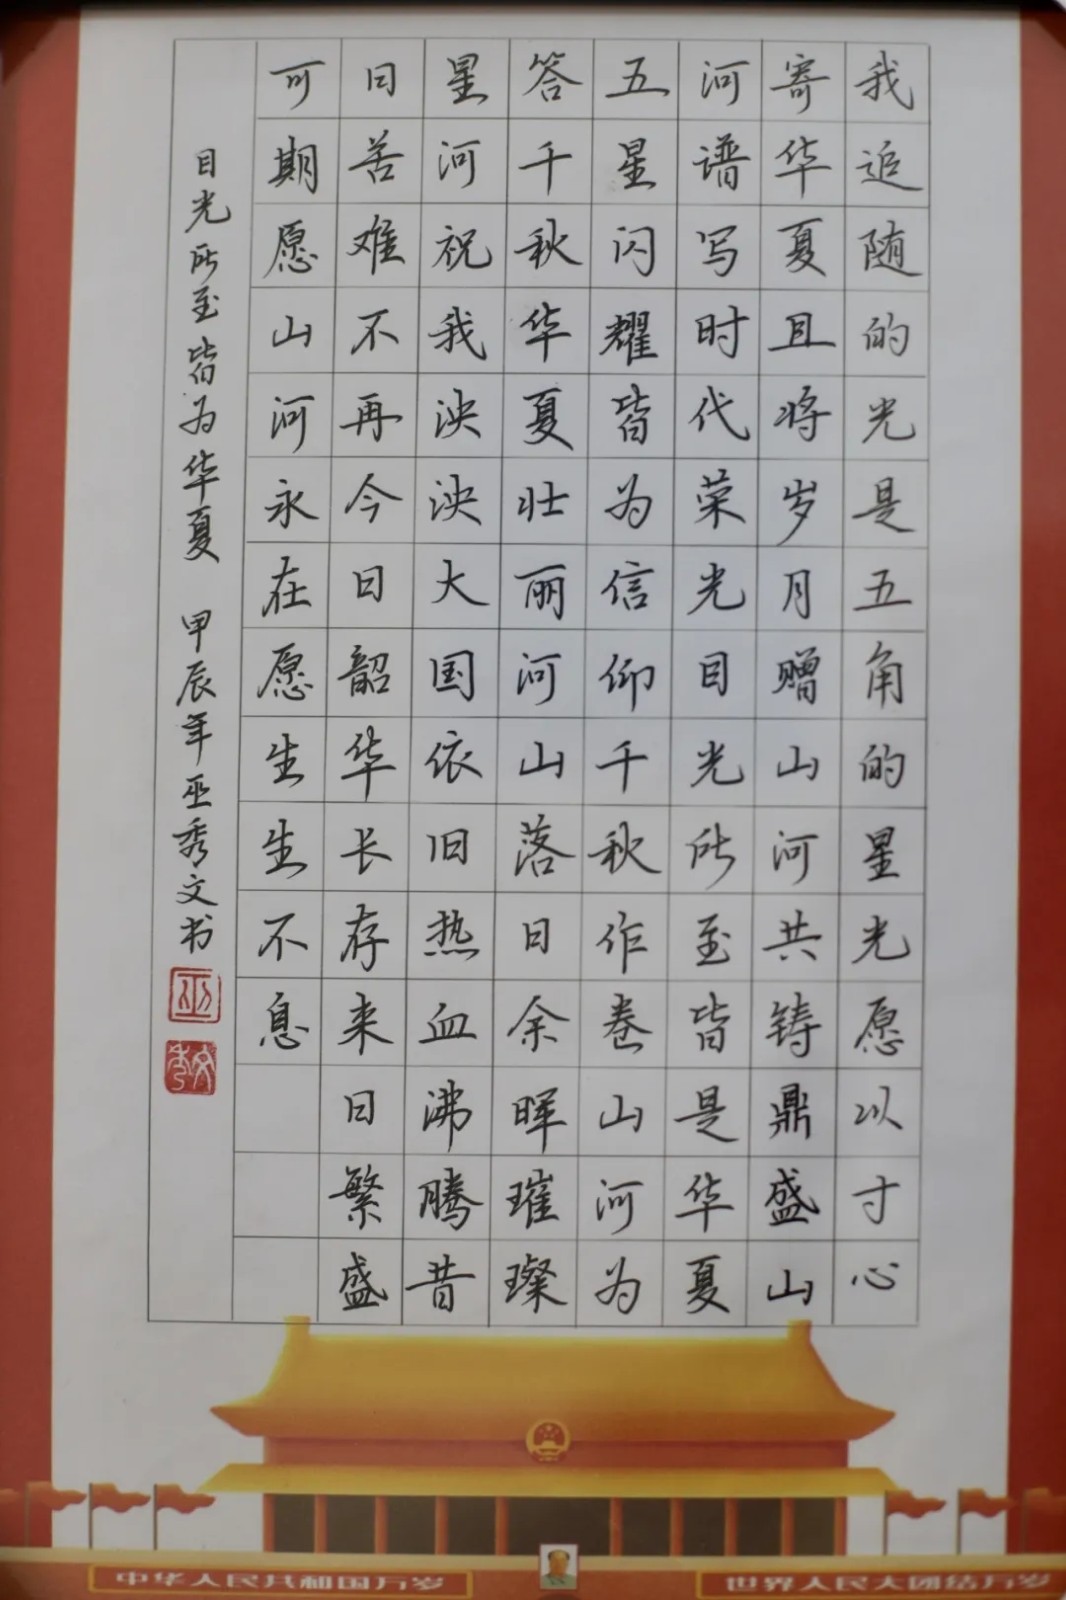 我追随的光是五角的星光愿以寸心
寄华夏且将岁月赠山河共铸鼎盛山
河谱写时代荣光目光所至皆是华夏
五星闪耀皆为信仰千秋作卷山河为
答千秋华夏壮丽河山落日余晖璀璨
星河祝我泱泱大国依旧热血沸腾昔
日苦难不再今日韶华长存来日繁盛
可期愿山河永在愿生生不息
目光所至皆为华夏 甲辰年巫秀文书
巫
秀文
中华人民共和国万岁
世界人民大团结万岁